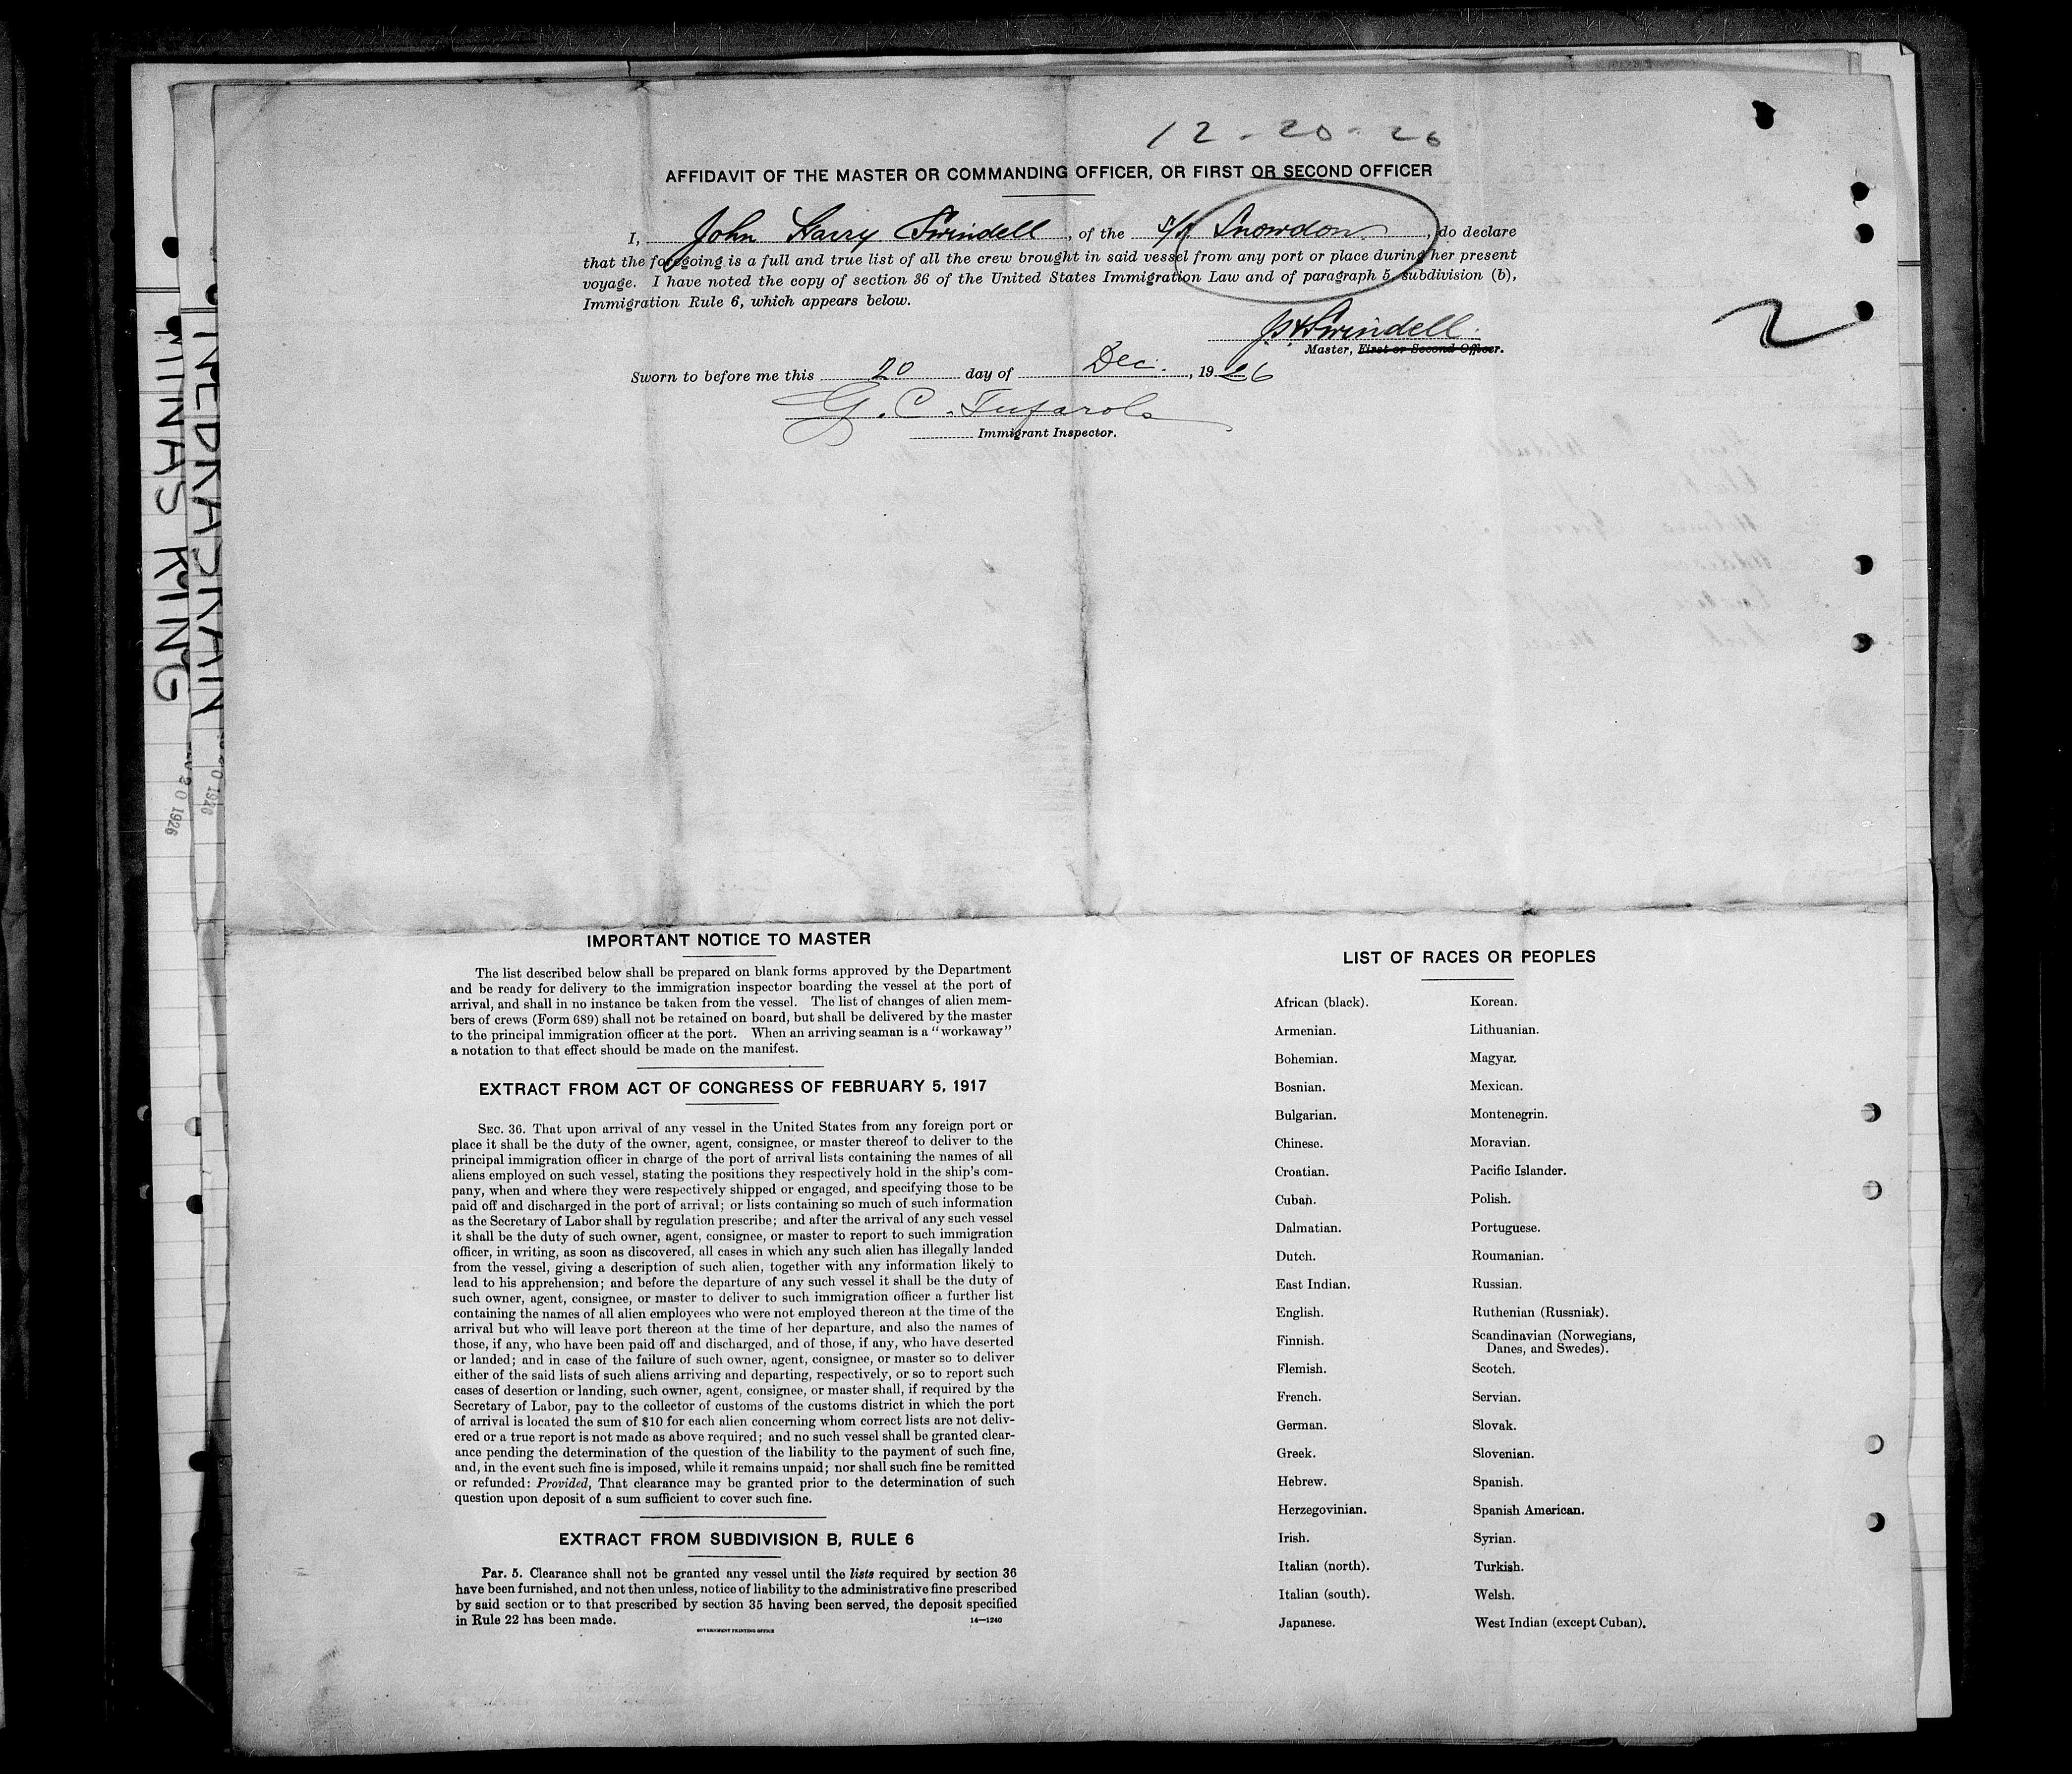 12-20-26
AFFIDAVIT OF THE MASTER OR COMMANDING OFFICER, OR FIRST OR SECOND OFFICER
I, John Harry Swindell, of the S/S Snowdon, do declare
that the foregoing is a full and true list of all the crew brought in said vessel from any port or place during her present
voyage. I have noted the copy of section 36 of the United States Immigration Law and of paragraph 5, subdivision (b),
Immigration Rule 6, which appears below.
2
JHSwindell.
Master, First or Second Officer.
Sworn to before me this 20 day of Dec., 1926
G. C. Tufarolo
Immigrant Inspector.
MINAS KING
DEC 20 1926
IMPORTANT NOTICE TO MASTER
The list described below shall be prepared on blank forms approved by the Department
and be ready for delivery to the immigration inspector boarding the vessel at the port of
arrival, and shall in no instance be taken from the vessel. The list of changes of alien mem-
bers of crews (Form 689) shall not be retained on board, but shall be delivered by the master
to the principal immigration officer at the port. When an arriving seaman is a "workaway"
a notation to that effect should be made on the manifest.
EXTRACT FROM ACT OF CONGRESS OF FEBRUARY 5, 1917
SEC. 36. That upon arrival of any vessel in the United States from any foreign port or
place it shall be the duty of the owner, agent, consignee, or master thereof to deliver to the
principal immigration officer in charge of the port of arrival lists containing the names of all
aliens employed on such vessel, stating the positions they respectively hold in the ship's com-
pany, when and where they were respectively shipped or engaged, and specifying those to be
paid off and discharged in the port of arrival; or lists containing so much of such information
as the Secretary of Labor shall by regulation prescribe; and after the arrival of any such vessel
it shall be the duty of such owner, agent, consignee, or master to report to such immigration
officer, in writing, as soon as discovered, all cases in which any such alien has illegally landed
from the vessel, giving a description of such alien, together with any information likely to
lead to his apprehension; and before the departure of any such vessel it shall be the duty of
such owner, agent, consignee, or master to deliver to such immigration officer a further list
containing the names of all alien employees who were not employed thereon at the time of the
arrival but who will leave port thereon at the time of her departure, and also the names of
those, if any, who have been paid off and discharged, and of those, if any, who have deserted
or landed; and in case of the failure of such owner, agent, consignee, or master so to deliver
either of the said lists of such aliens arriving and departing, respectively, or so to report such
cases of desertion or landing, such owner, agent, consignee, or master shall, if required by the
Secretary of Labor, pay to the collector of customs of the customs district in which the port
of arrival is located the sum of $10 for each alien concerning whom correct lists are not deliv-
ered or a true report is not made as above required; and no such vessel shall be granted clear-
ance pending the determination of the question of the liability to the payment of such fine,
and, in the event such fine is imposed, while it remains unpaid; nor shall such fine be remitted
or refunded: Provided, That clearance may be granted prior to the determination of such
question upon deposit of a sum sufficient to cover such fine.
EXTRACT FROM SUBDIVISION B, RULE 6
Par. 5. Clearance shall not be granted any vessel until the lists required by section 36
have been furnished, and not then unless, notice of liability to the administrative fine prescribed
by said section or to that prescribed by section 35 having been served, the deposit specified
in Rule 22 has been made.
14—1240
GOVERNMENT PRINTING OFFICE
LIST OF RACES OR PEOPLES
African (black).
Armenian.
Bohemian.
Bosnian.
Bulgarian.
Chinese.
Croatian.
Cuban.
Dalmatian.
Dutch.
East Indian.
English.
Finnish.
Flemish.
French.
German.
Greek.
Hebrew.
Herzegovinian.
Irish.
Italian (north).
Italian (south).
Japanese.
Korean.
Lithuanian.
Magyar.
Mexican.
Montenegrin.
Moravian.
Pacific Islander.
Polish.
Portuguese.
Roumanian.
Russian.
Ruthenian (Russniak).
Scandinavian (Norwegians,
Danes, and Swedes).
Scotch.
Servian.
Slovak.
Slovenian.
Spanish.
Spanish American.
Syrian.
Turkish.
Welsh.
West Indian (except Cuban).